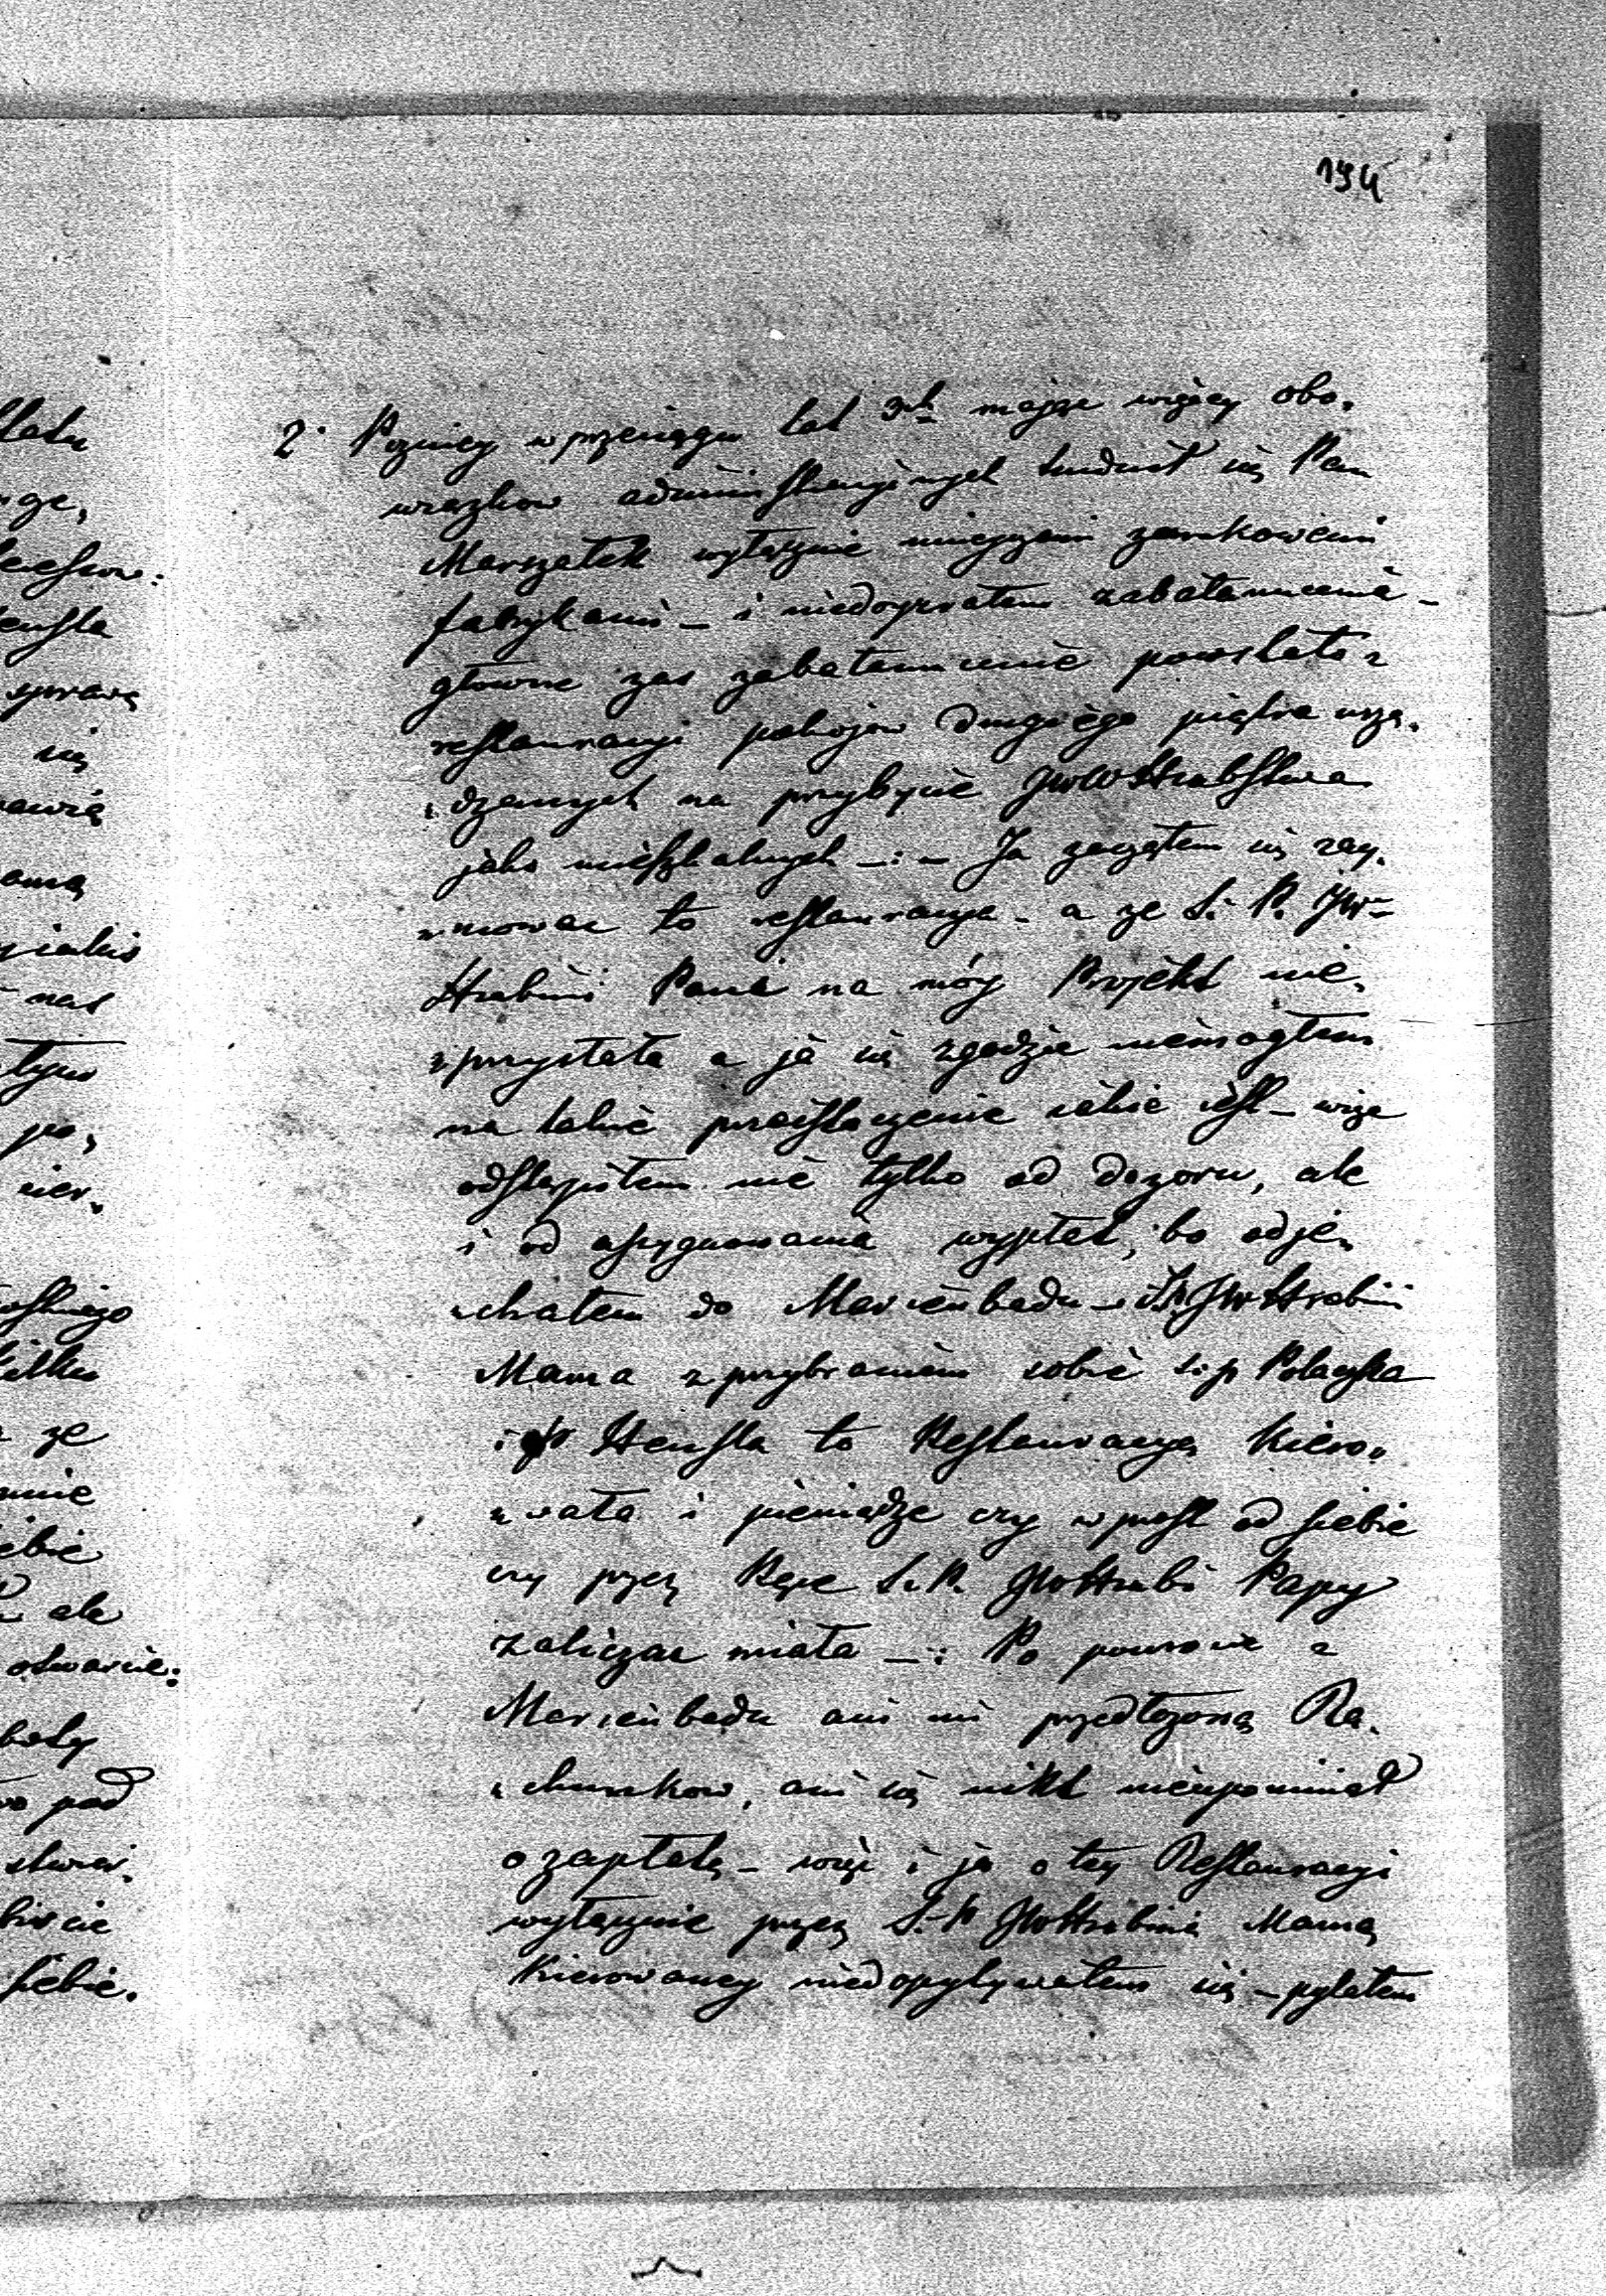 194
2. Pozniey w przeciągu lat 3ch mając więcey obo,
wiązkow administracyinych trudnił się Pan
Marszałek wyłącznie mnieyszemi zamkowemi
fabrykami – i niedoyrzałem zabałamucenia –
głowne zas zabałamucenie powstało z
restauracyi pokojow drugiego piątra urzą,
„dzanych na przybycie JWW Hrabstwa
jako mieszkalnych –:– Ja zacząłem się zay,
„mowac to restauracya – a ze S. P. JW
Hrabini Pani na móy Projekt nie,
„przystała a ja się zgodzic niemogłem
na takie przeistoczenie jakie jest – więc
odstąpiłem nie tylko od dozoru, ale
i od assygnowania wypłat, bo odje,
„chałem do Marienbadu – S.P. JW Hrabini
Mama z przybraniem sobie s.p. Polaczka
i Hensla to Restauracyą kiero,
„wała i pieniądze czy w prost od siebie
czy przez Ręce S. P. JW Hrabi Papy
zaliczac miała –: Po powrocie z
Marienbadu ani mi przedłożoną Ra,
„chunkow, ani się nikt nieupominał
o zapłatę – więc i ja o tey Restauracyi
wyłącznie przez S. P. JW Hrabinię Mamę
Kierowaney niedopytywałem się – pytałem